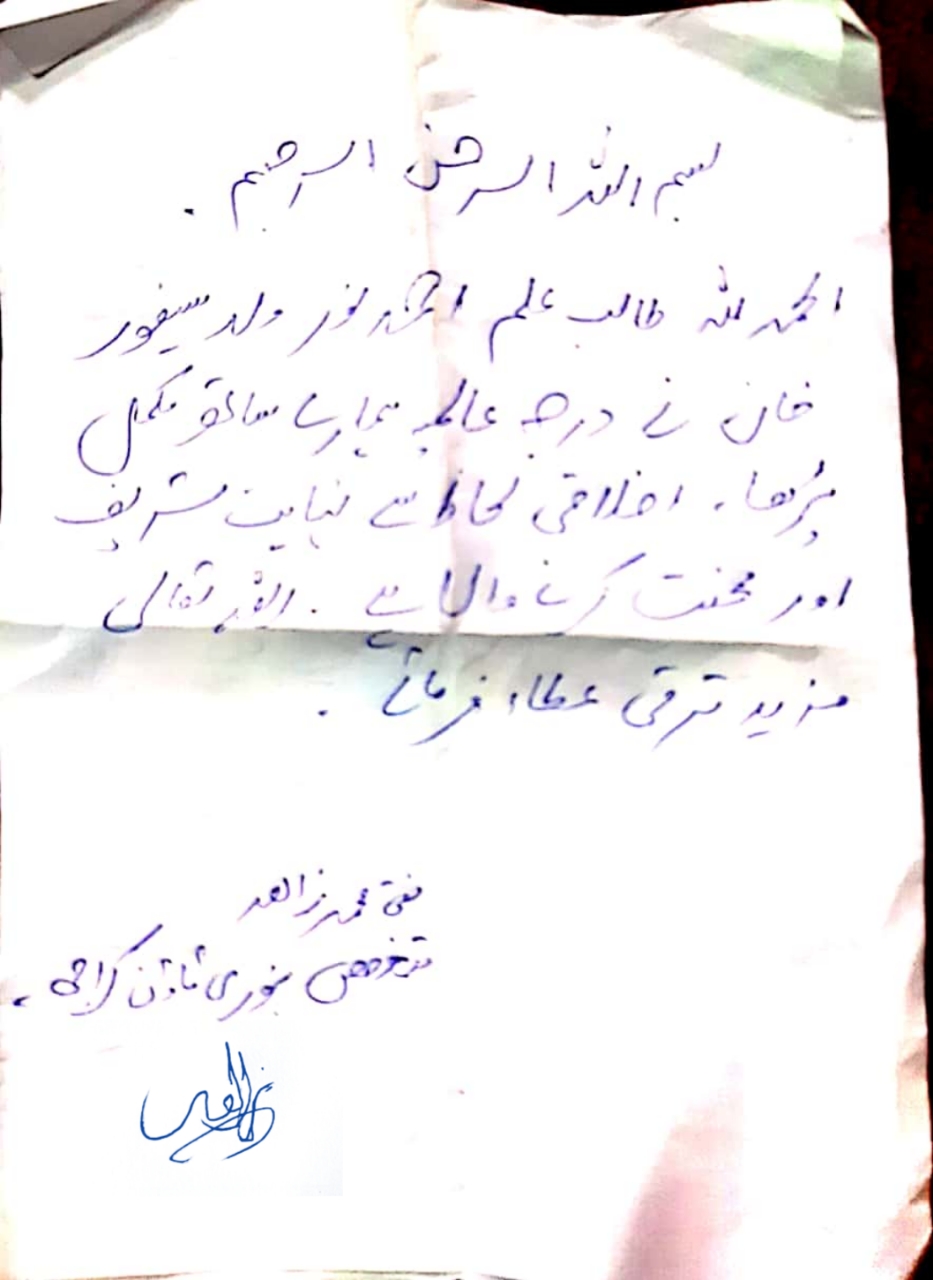 بسم اللہ الرحمن الرحیم .
الحمد للہ طالب علم احمد نور ولد سیفور
خان نے درجہ عالمیہ ہمارے ساتھ مکمل
پڑھا۔ اخلاقی لحاظ سے نہایت شریف
اور محنت کرنے والا ہے . اللہ تعالی
مزید ترقی عطاء فرمائے .
مفتی محمد زاھد
متخصص بنوری ٹاؤن کراچی .